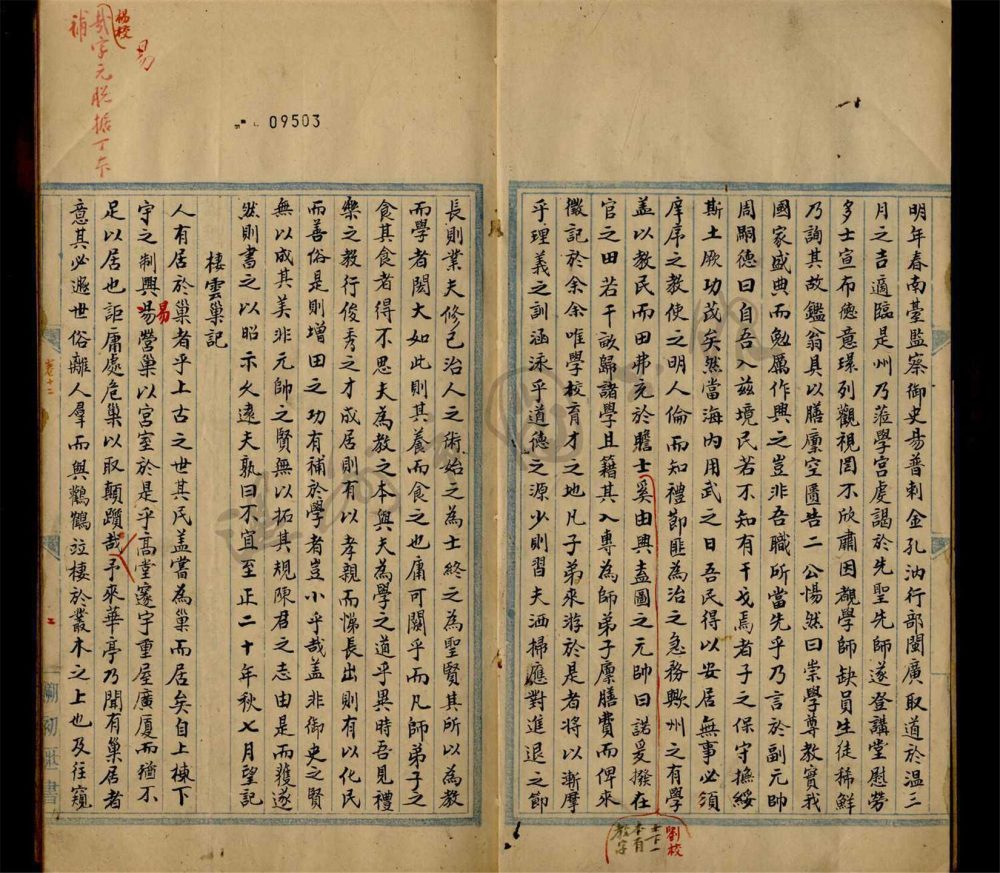 明年春南臺監察御史昜普剌金孔汭行部閩廣取道於溫三
月之吉適臨是州乃蒞學宮虔謁於先聖先師遂登講堂慰勞
多士宣布德意環列觀視罔不欣肅因覩學師缺員生徒稀鮮
乃詢其故鑑翁具以膳廩空匱告二公惕然曰崇學尊教實我
國家盛典而勉厲作興之豈非吾職所當先乎乃言於副元帥
周嗣德曰自吾入玆境民若不知有干戈焉者子之保守撫綏
斯土厥功茂矣然當海內用武之日吾民得以安居無事必須
庠序之教使之明人倫而知禮節匪為治之急務歟州之有學
盖以教民而田弗充於贍士奚由興盍圖之元帥曰諾爰撥在
官之田若干畝歸諸學且籍其入專為師弟子廩膳費而俾來
徵記於余余唯學校育才之地凡子弟來游於是者將以漸摩
乎理義之訓涵泳乎道德之源少則習夫洒掃應對進退之節
劉校
士下一
本有
教字
長則業夫修己治人之術始之為士終之為聖賢其所以為教
而學者闊大如此則其養而食之也庸可闕乎而凡師弟子之
食其食者得不思夫為教之本與夫為學之道乎異時吾見禮
樂之教行俊秀之才成居則有以孝親而悌長出則有以化民
而善俗是則增田之功有補於學者豈小乎哉盖非御史之賢
無以成其美非元帥之賢無以拓其規陳君之志由是而獲遂
然則書之以昭示久遠夫孰曰不宜至正二十年秋七月望記
棲雲巢記
人有居於巢者乎上古之世其民盖嘗為巢而居矣自上棟下
宇之制興昜營巢以宮室於是乎高堂邃宇重屋廣厦而猶不
易
足以居也詎庸處危巢以取顛躓哉予來華亭乃聞有巢居者
意其必遯世俗離人羣而與鸛鶴泣棲於叢木之上也及往窺
易
楊校
哉字元脫據丁本
補
09503
卷十三